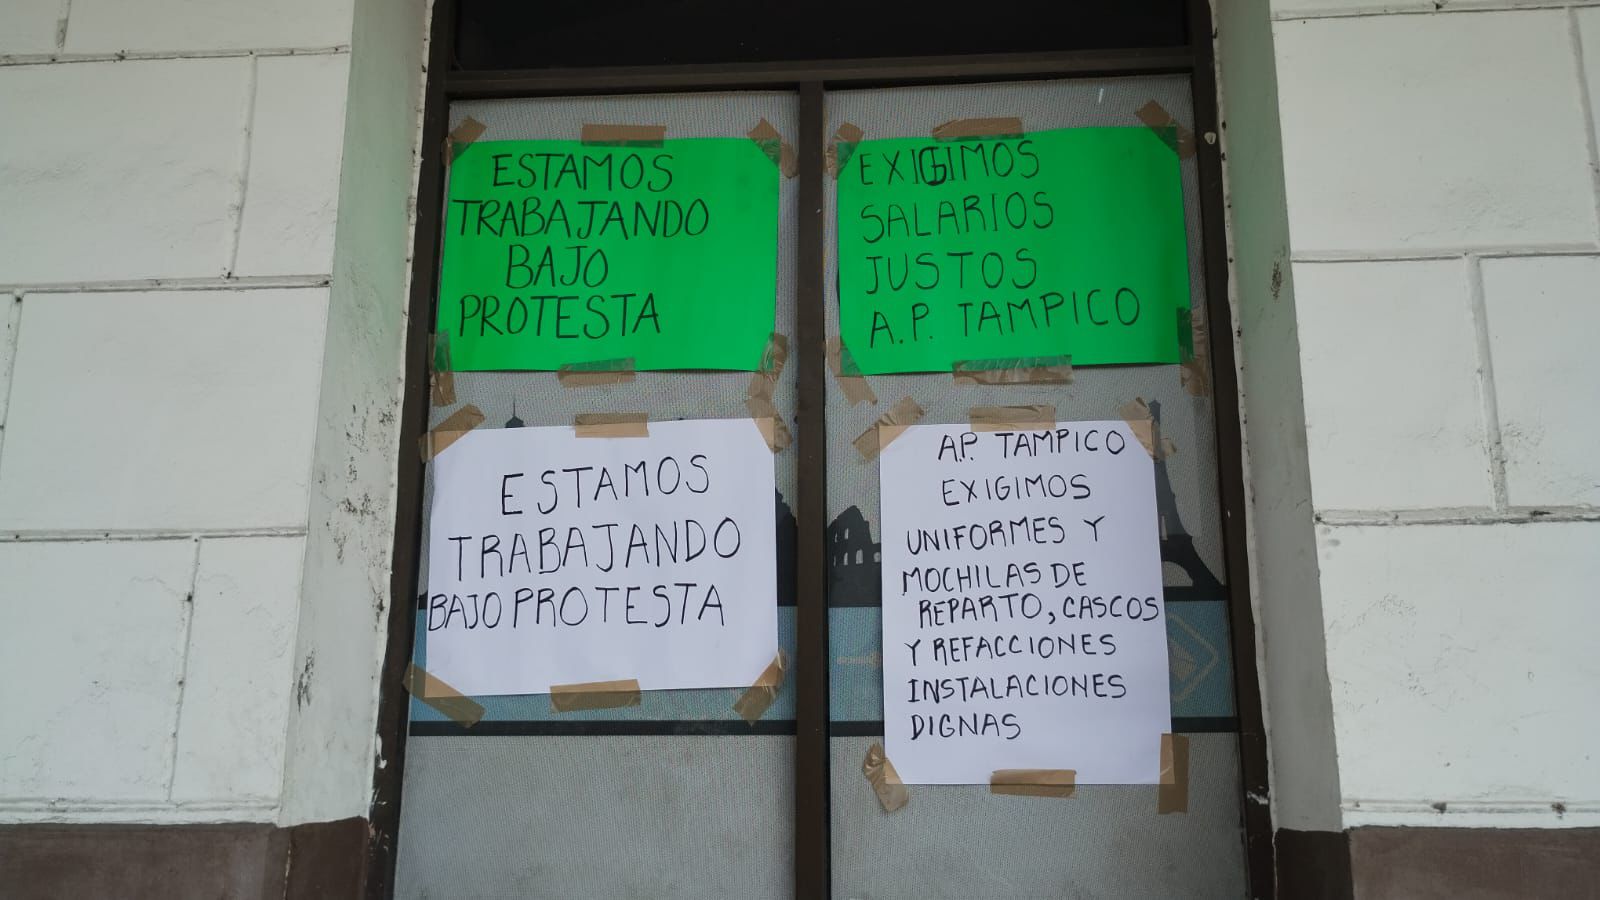 ESTAMOS
TRABAJANDO
BAJO
PROTESTA
EXIGIMOS
SALARIOS
JUSTOS
A.P. TAMPICO
ESTAMOS
TRABAJANDO
BAJO PROTESTA
A.P. TAMPICO
EXIGIMOS
UNIFORMES Y
MOCHILAS DE
REPARTO, CASCOS
Y REFACCIONES
INSTALACIONES
DIGNAS